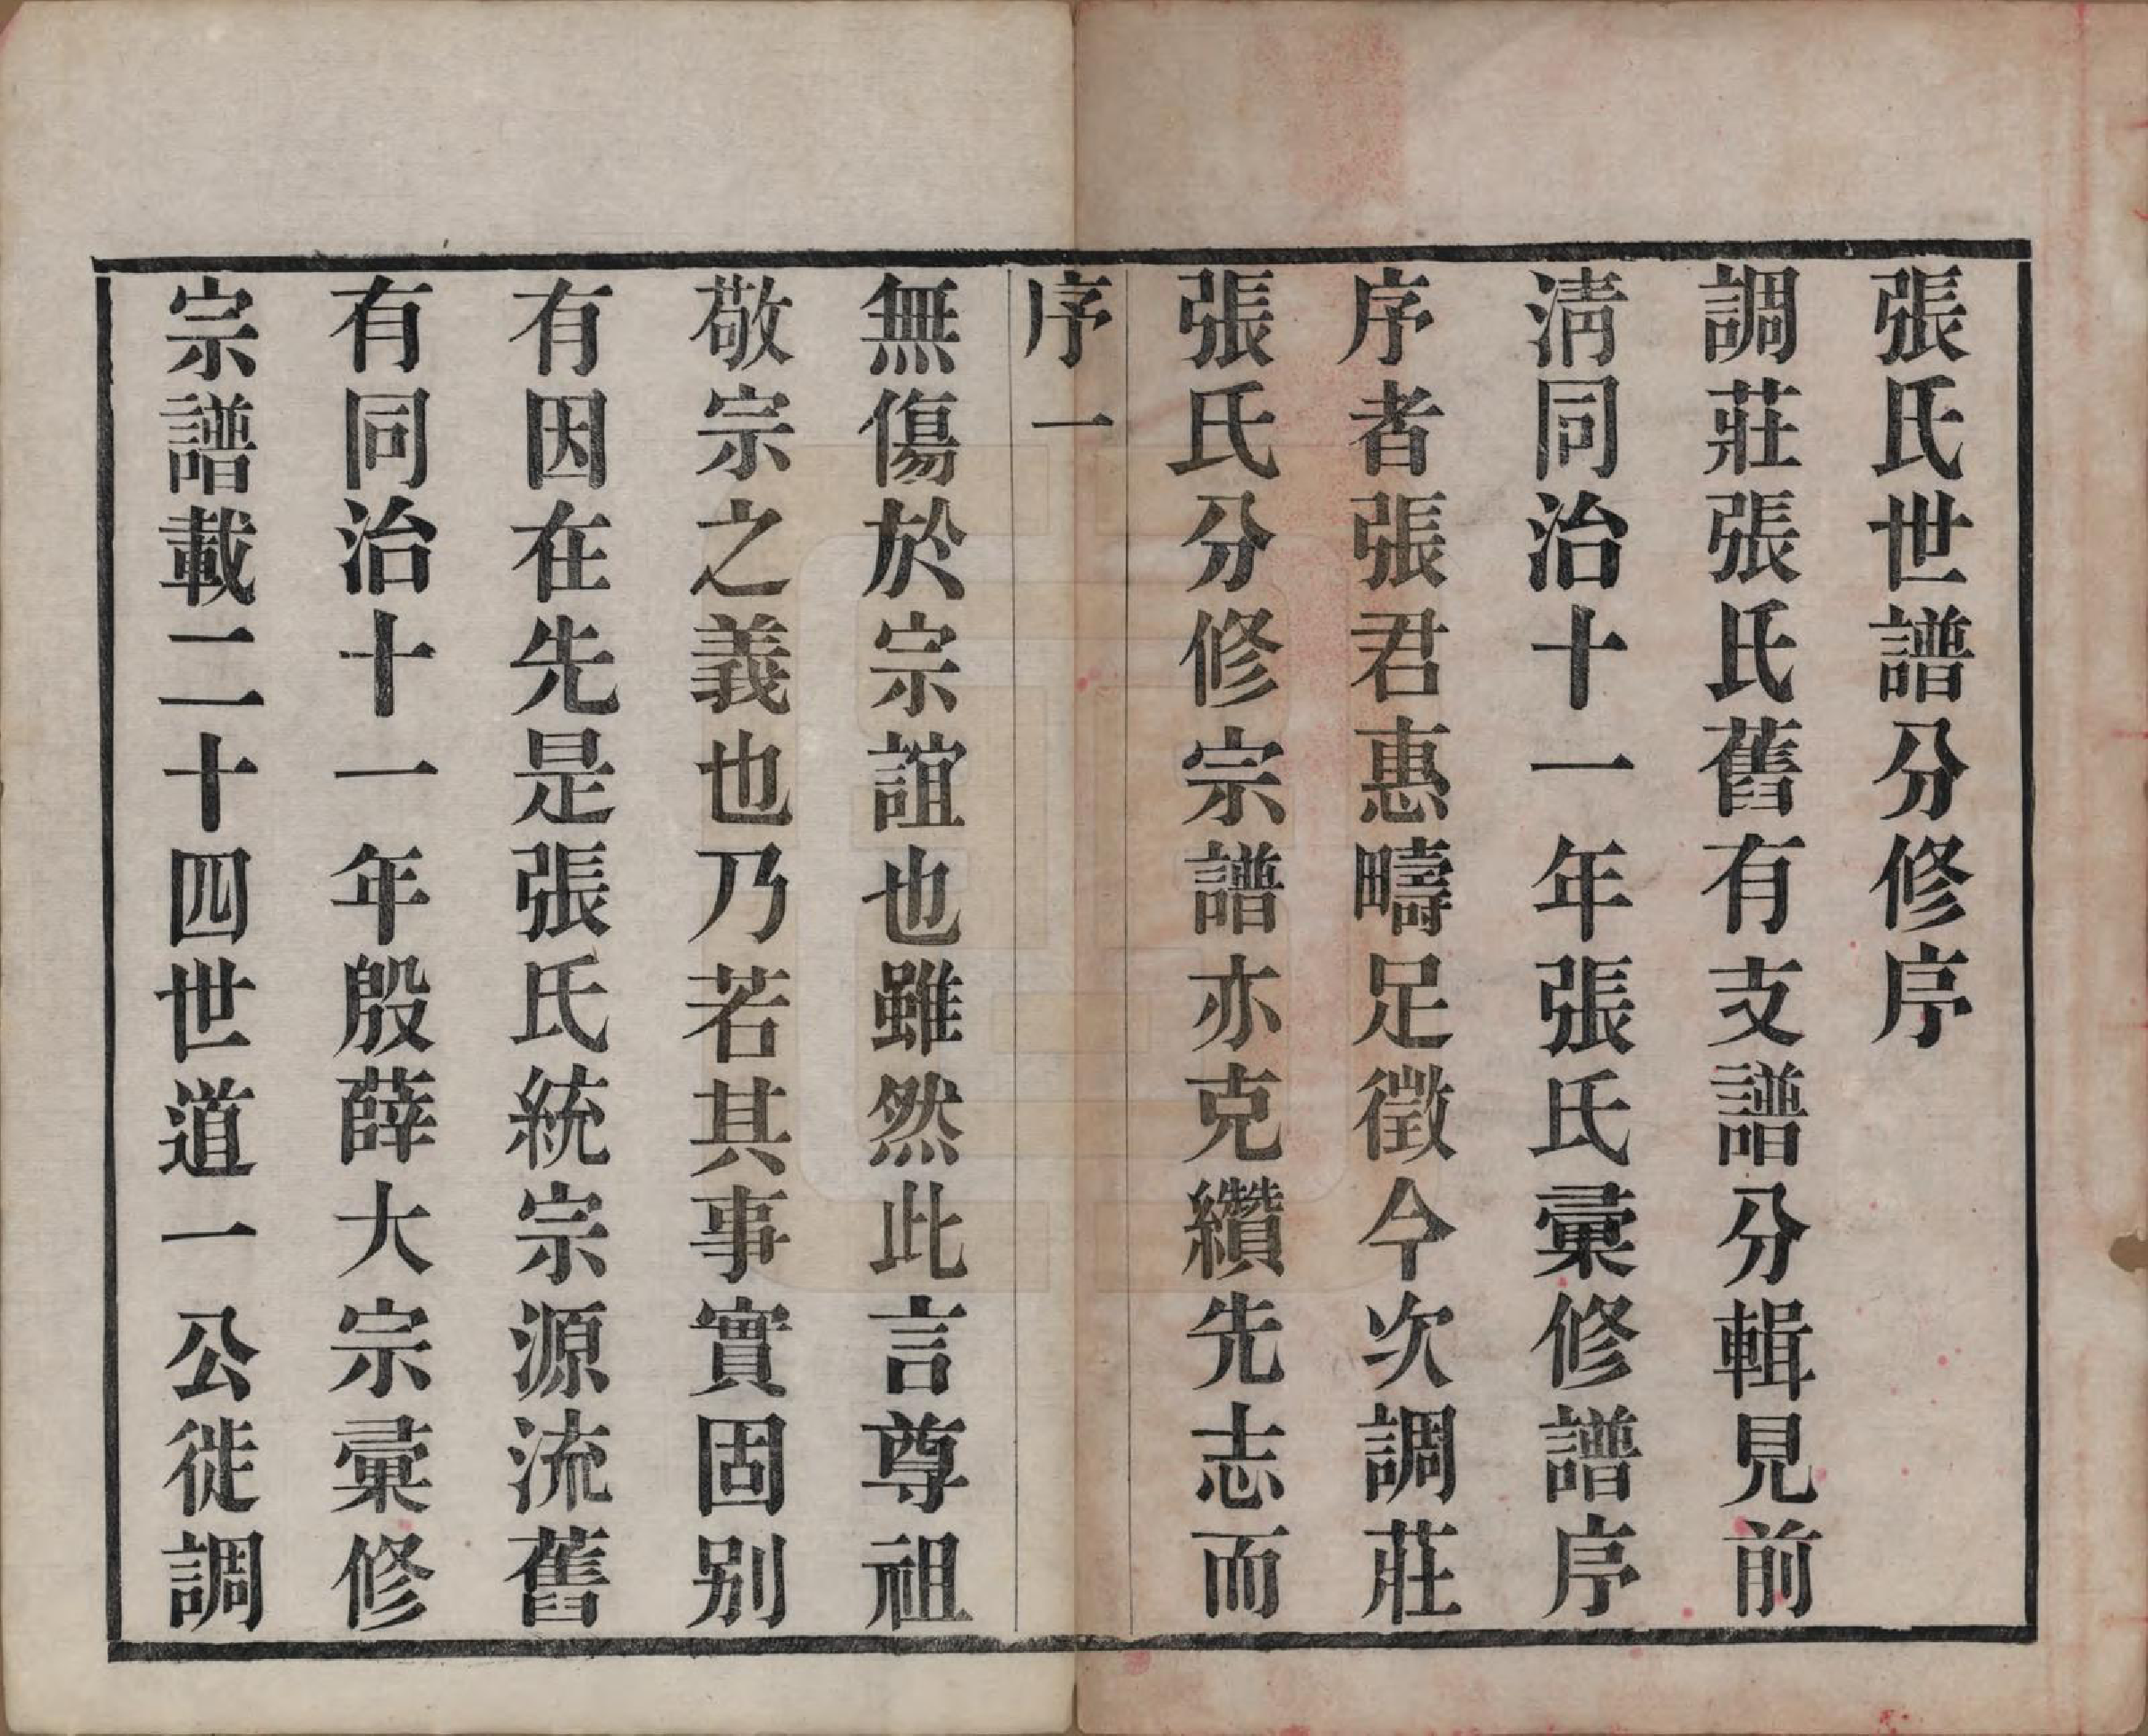 張氏世譜分修序
調莊張氏舊有支譜分輯見前
淸同治十一年張氏彙修譜序
序者張君惠疇足徵今次調莊
張氏分修宗譜亦克纘先志而
序一
無傷於宗誼也雖然此言尊祖
敬宗之義也乃若其事實固别
有因在先是張氏統宗源流舊
有同治十一年殷薛大宗彙修
宗譜載二十四世道一公徙調